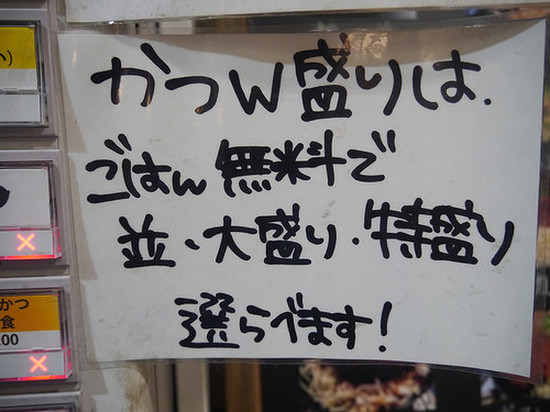 かつW盛りは.
ごはん無料で
並・大盛り・特盛り
選らべます!
い)
×
かつ
食
00
×